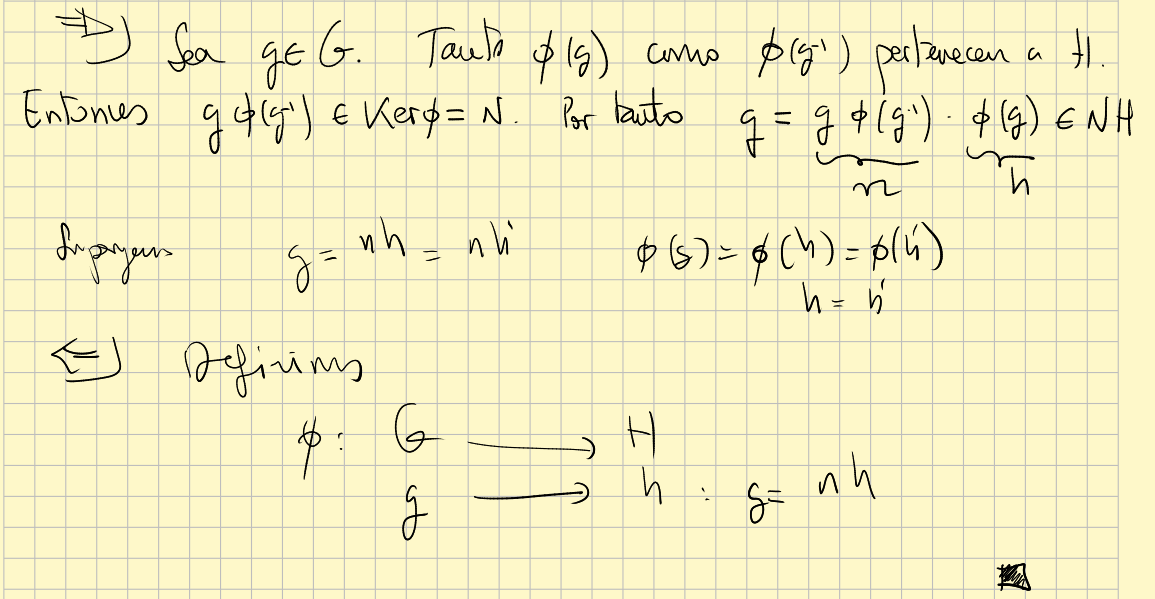 ⇒) Sea g ∈ G. Tanto φ(g) como φ(g⁻¹) pertenecen a H.
Entonces g φ(g⁻¹) ∈ Ker φ = N. Por tanto g = g φ(g⁻¹) · φ(g) ∈ NH
n h
Supongamos g = nh = nh' φ(g) = φ(h) = φ(h')
h = h'
⇐) Definimos
φ: G ⟶ H
g ⟶ h : g = nh